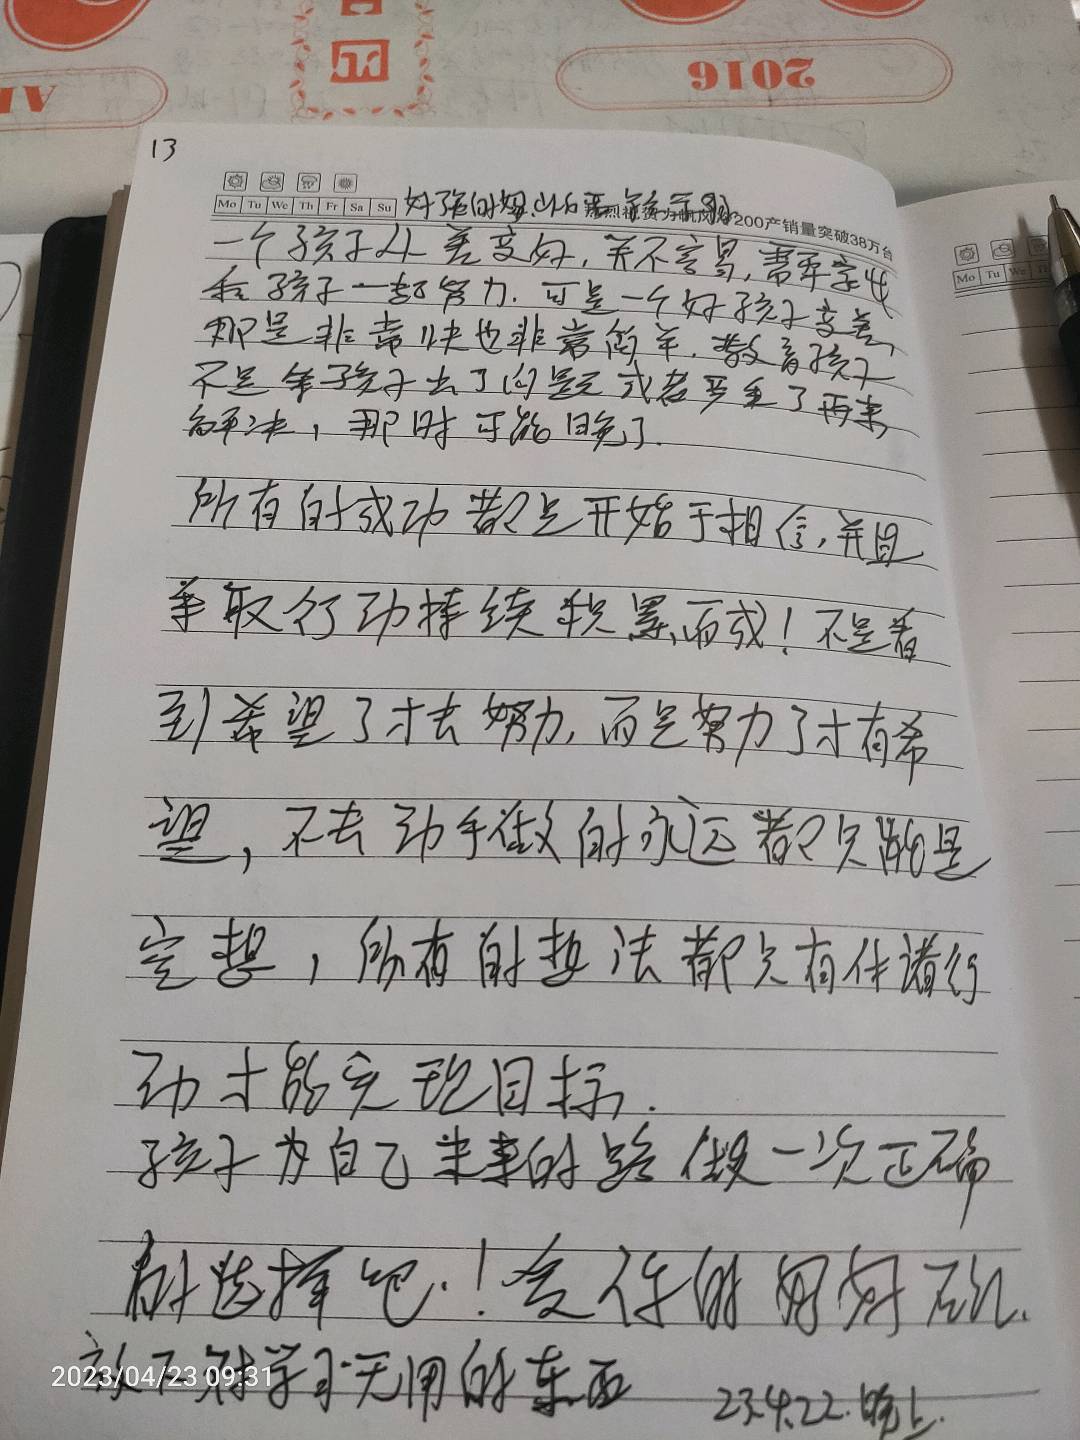 2016
13
Mo Tu We Th Fr Sa Su
200产销量突破38万台
Mo Tu We Th
一个孩子从差变好，并不容易，需要家长
和孩子一起努力．可是一个好孩子变差，
那是非常快也非常简单．教育孩子
不是等孩子出了问题或者严重了再来
解决，那时可能晚了．
所有的成功都是开始于相信，并且
采取行动持续积累而成！不是看
到希望了才去努力，而是努力了才有希
望，不去动手做的永远都只能是
空想，所有的想法都只有付诸行
动才能实现目标．
孩子为自己未来的路做一次正确
的选择吧！爱你的妈妈
放下对学习无用的东西
23.4.22.晚上．
2023/04/23 09:31